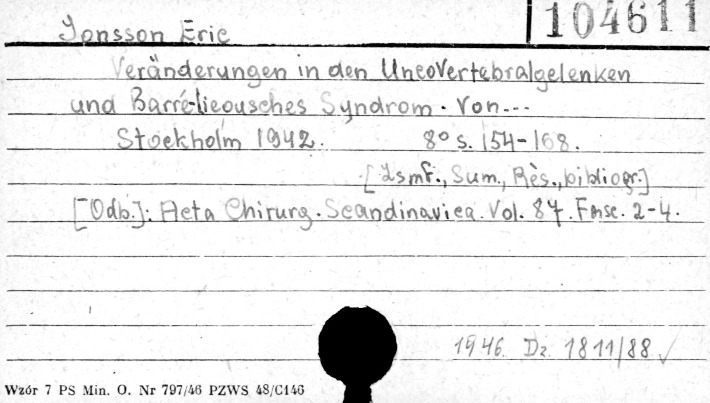 104611
Jonsson Eric
Veränderungen in den Uncovertebralgelenken
und Barré-lieousches Syndrom. Von...
Stockholm 1942. 8° s. 154-168.
[Zsmf., Sum., Rès., bibliogr.]
[Odb.]: Acta Chirurg. Scandinavica. Vol. 87. Fasc. 2-4.
1946. Dz. 1811/88 ✓
Wzór 7 PS Min. O. Nr 797/46 PZWS 48/C146